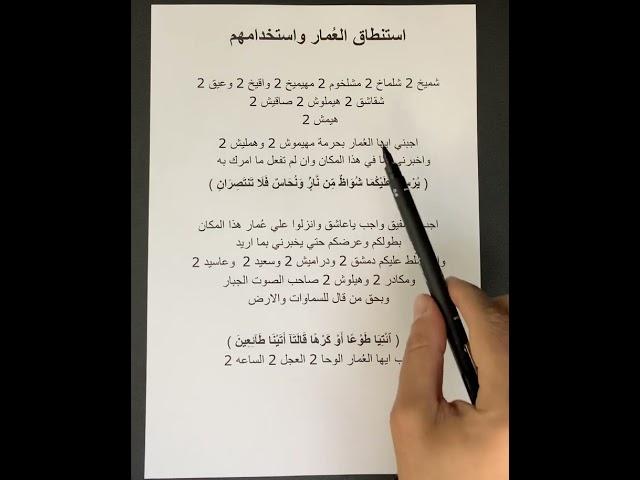 استنطاق العُمار واستخدامهم
شميخ 2 شلماخ 2 مشلخوم 2 مهيميخ 2 واقيخ 2 وعيق 2
شقاشق 2 هيملوش 2 صاقيش 2
هيمش 2
اجبني ايها العُمار بحرمة مهيموش 2 وهمليش 2
واخبرني في هذا المكان وان لم تفعل ما امرك به
( عَلَيْكُمَا شُوَاظٌ مِّن نَّارٍ وَنُحَاسٌ فَلَا تَنتَصِرَانِ )
واجب ياعاشق وانزلوا علي عُمار هذا المكان
بطولكم وعرضكم حتي يخبرني بما اريد
عليكم دمشق 2 ودراميش 2 وسعيد 2 وعاسيد 2
ومكادر 2 وهيلوش 2 صاحب الصوت الجبار
وبحق من قال للسماوات والارض
( ٱئْتِيَا طَوْعًا أَوْ كَرْهًا قَالَتَآ أَتَيْنَا طَآئِعِينَ )
ايها العُمار الوحا 2 العجل 2 الساعه 2